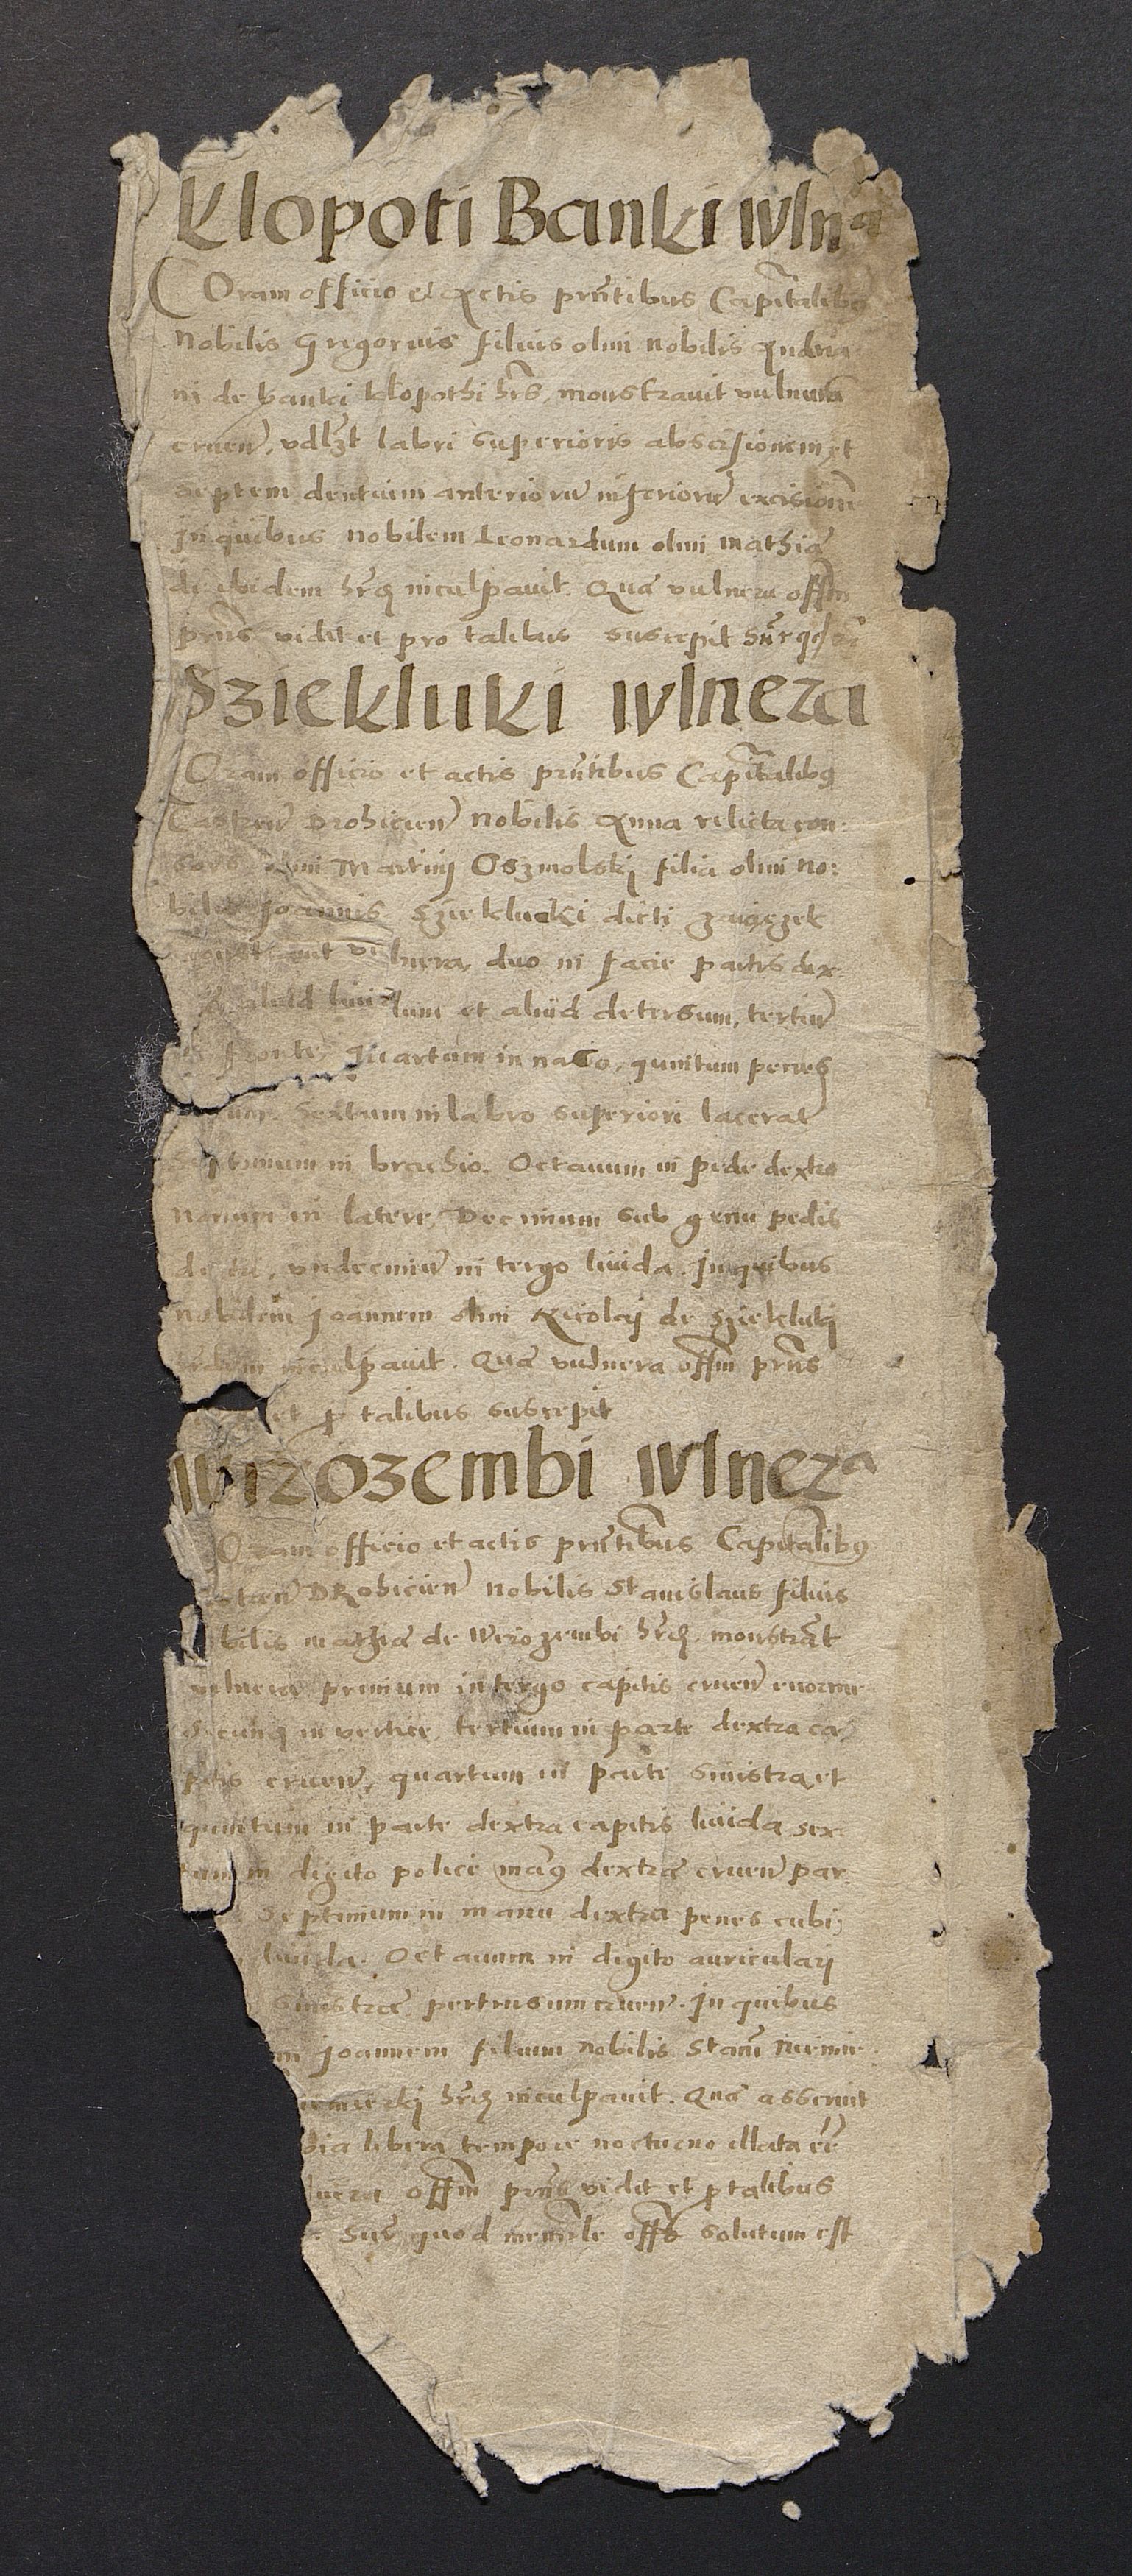 Klopoti Banki wlna
Coram officio et Actis prntibus Capitalibus
Nobilis Grigorius filius olim nobilis Andria
ni de banki klopothi hrs, monstravit vulnera
cruen, vdlzt labri superioris abscisionem et
septem dentium anterioru inferioru excisionem
In quibus nobilem Leonardum olim Mathiae
de ibidem hrdz inculpavit. Quae vulnera offm
prns vidit et pro talibus suscepit
Sziekluki wlnera
Coram officio et actis prntibus Capitalibus
Castren Drohicien Nobilis Anna relicta con:
olim Martini Oszmolskj filia olim no:
bilis Joannis Szieklucki dicti zaiączek
vulnera, duo in facie partis dex
aliud livi dum et aliud detersum, tertiu
fronte, Quartum in naso, quintum penes
Sextum in labro superiori lacerat
Septimum in brachio. Octavum in pede dextro
Nonum in latere, Decimum sub genu pedis
undecimu in tergo livida. In quibus
nobilem Joannem olim Nicolaj de Szieklukj
inculpavit. Quae vulnera offm prns
et p talibus suscepit
Wirozembi wlnera
Coram officio et actis prntibus Capitalibus
Drohicien Nobilis Stanislaus filius
bilis mathiae de Wirozembi hrdz. monstrat
vulnera primum in tergo capitis cruen enorme
Secund in vertice, tertium in parte dextra ca
pitis cruen, quartum in parte sinistra, et
quintum in parte dextra capitis livida sex
tum in digito police man9 dextrae cruen par
Septimum in manu dextra penes cubi
livida. Octavum in digito auriculari
sinistrae pertusum cruen. In quibus
m Joannem filium nobilis Stani niemir
iemierkj hrdz inculpavit. Quae asseruit
via libera tempore nocturno illata ee
lnera offm prns vidit et p talibus
Sup quod memrle offo solutum est